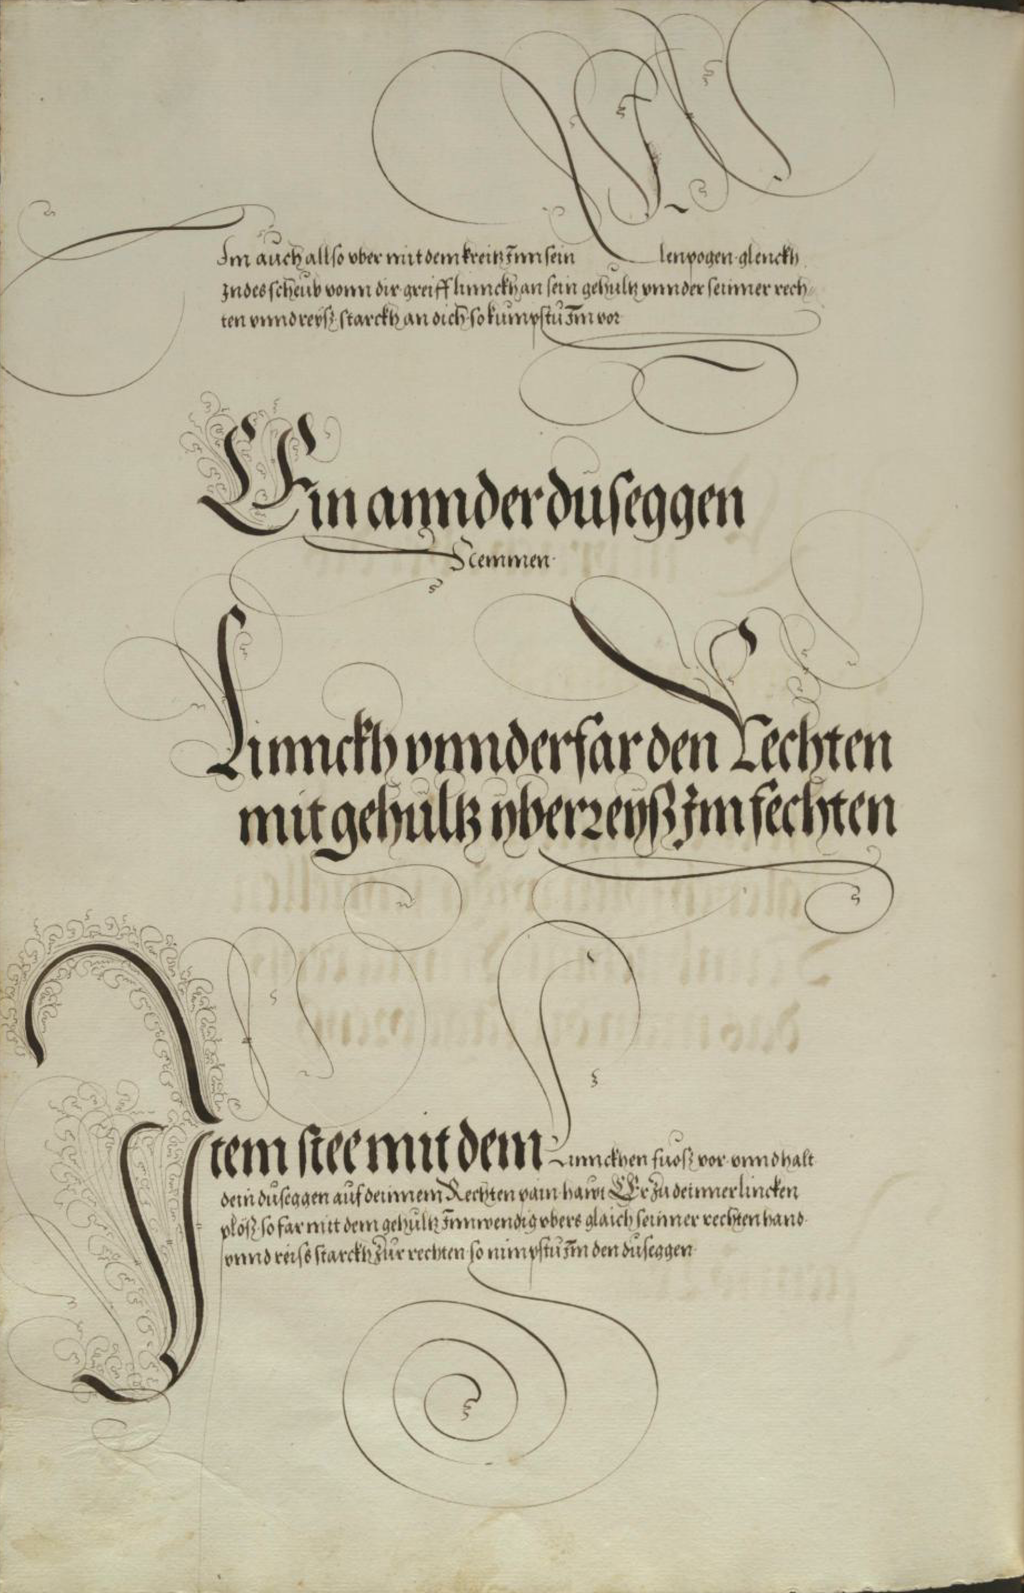 Im auch allso vber mit dem kreitz Inn sein Ellenpogen glenckh
Indes scheub vonn dir greiff linnckh an sein gehultz vnnder seinner rech
ten vnnd reysz starckh an dich so kumpstu Im vor
Ein annder duseggen
Nemmen
Linnckh vnnderfar den Rechten
mit gehultz yberreysz Im fechten
Item stee mit dem Linnckhen fuosz vor vnnd halt
dein duseggen auf deinnem Rechten pain hawt Er zu deinner lincken
plösz so far mit dem gehultz Innwendig vbers glaich seinner rechten hand
vnnd reiss starckh zur rechten so nimpstu Im den duseggen